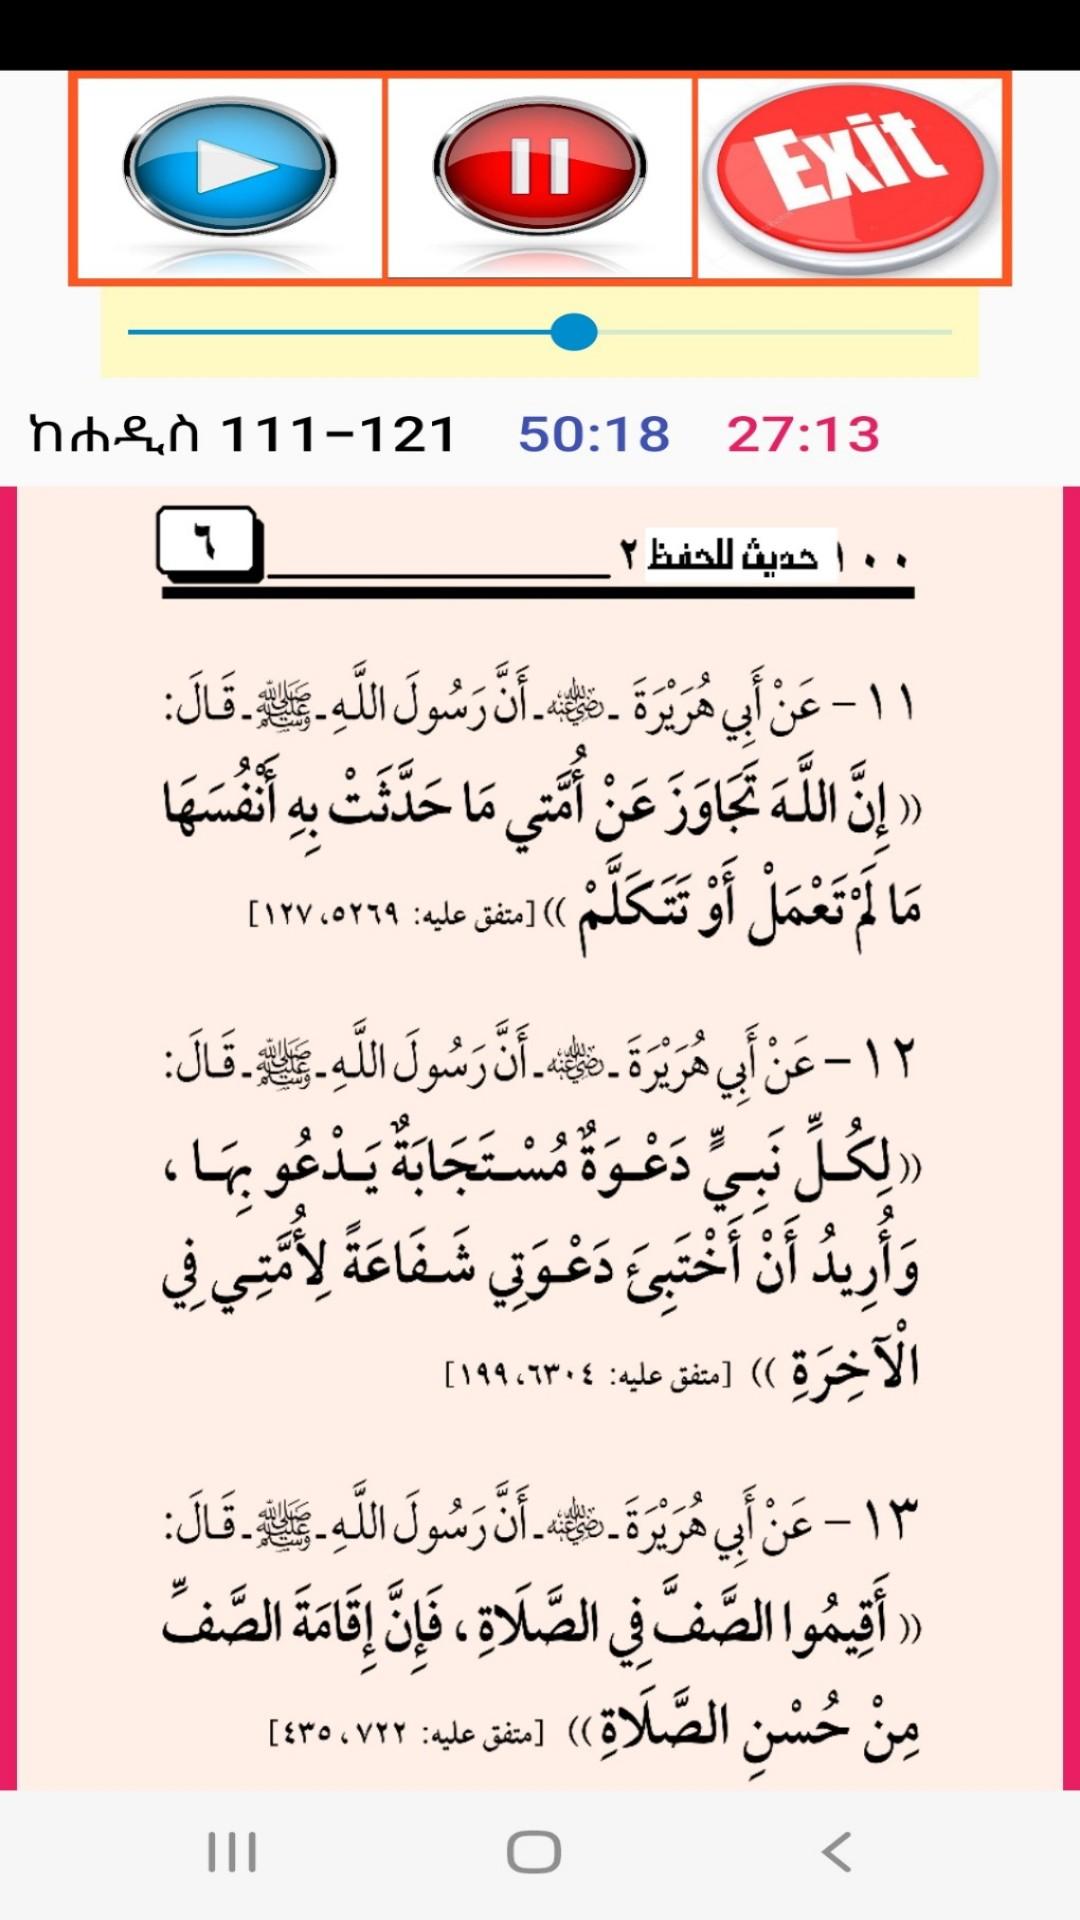 Exit
ከሐዲስ 111-121 50:18 27:13
١٠٠ حديث للحفظ ٢
٦
١١ - عَنْ أَبِي هُرَيْرَةَ ـ رضي الله عنه ـ أَنَّ رَسُولَ اللَّهِ ـ ﷺ ـ قَالَ:
(( إِنَّ اللَّهَ تَجَاوَزَ عَنْ أُمَّتِي مَا حَدَّثَتْ بِهِ أَنْفُسَهَا
مَا لَمْ تَعْمَلْ أَوْ تَتَكَلَّمْ )) [متفق عليه: ٥٢٦٩، ١٢٧]
١٢ - عَنْ أَبِي هُرَيْرَةَ ـ رضي الله عنه ـ أَنَّ رَسُولَ اللَّهِ ـ ﷺ ـ قَالَ:
(( لِكُلِّ نَبِيٍّ دَعْوَةٌ مُسْتَجَابَةٌ يَدْعُو بِهَا ،
وَأُرِيدُ أَنْ أَخْتَبِئَ دَعْوَتِي شَفَاعَةً لِأُمَّتِي فِي
الْآخِرَةِ )) [متفق عليه: ٦٣٠٤، ١٩٩]
١٣ - عَنْ أَبِي هُرَيْرَةَ ـ رضي الله عنه ـ أَنَّ رَسُولَ اللَّهِ ـ ﷺ ـ قَالَ:
(( أَقِيمُوا الصَّفَّ فِي الصَّلَاةِ ، فَإِنَّ إِقَامَةَ الصَّفِّ
مِنْ حُسْنِ الصَّلَاةِ )) [متفق عليه: ٧٢٢، ٤٣٥]